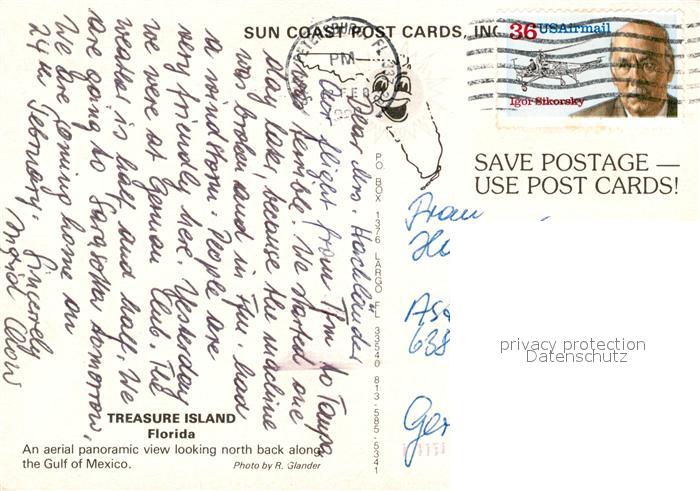 SUN COAST POST CARDS, INC.
PETERSBURG, FL
PM
FEB
36 USAirmail
Igor Sikorsky
SAVE POSTAGE —
USE POST CARDS!
Dear Mrs. Hochländer
Our flight from Ffm to Tampa
was terrible. We started one
day late, because the machine
was broken and in Ffm. had
a sandstorm. People are
very friendly here. Yesterday
we were at German Club. The
weather is half and half. We
are going to Sarasota tomorrow,
We are coming home on
24th February.
Sincerely
Ingrid
P.O. BOX 1376 LARGO, FL 33540 813-585-5341
Frau
638
Ger
privacy protection
Datenschutz
TREASURE ISLAND
Florida
An aerial panoramic view looking north back along
the Gulf of Mexico.
Photo by R. Glander